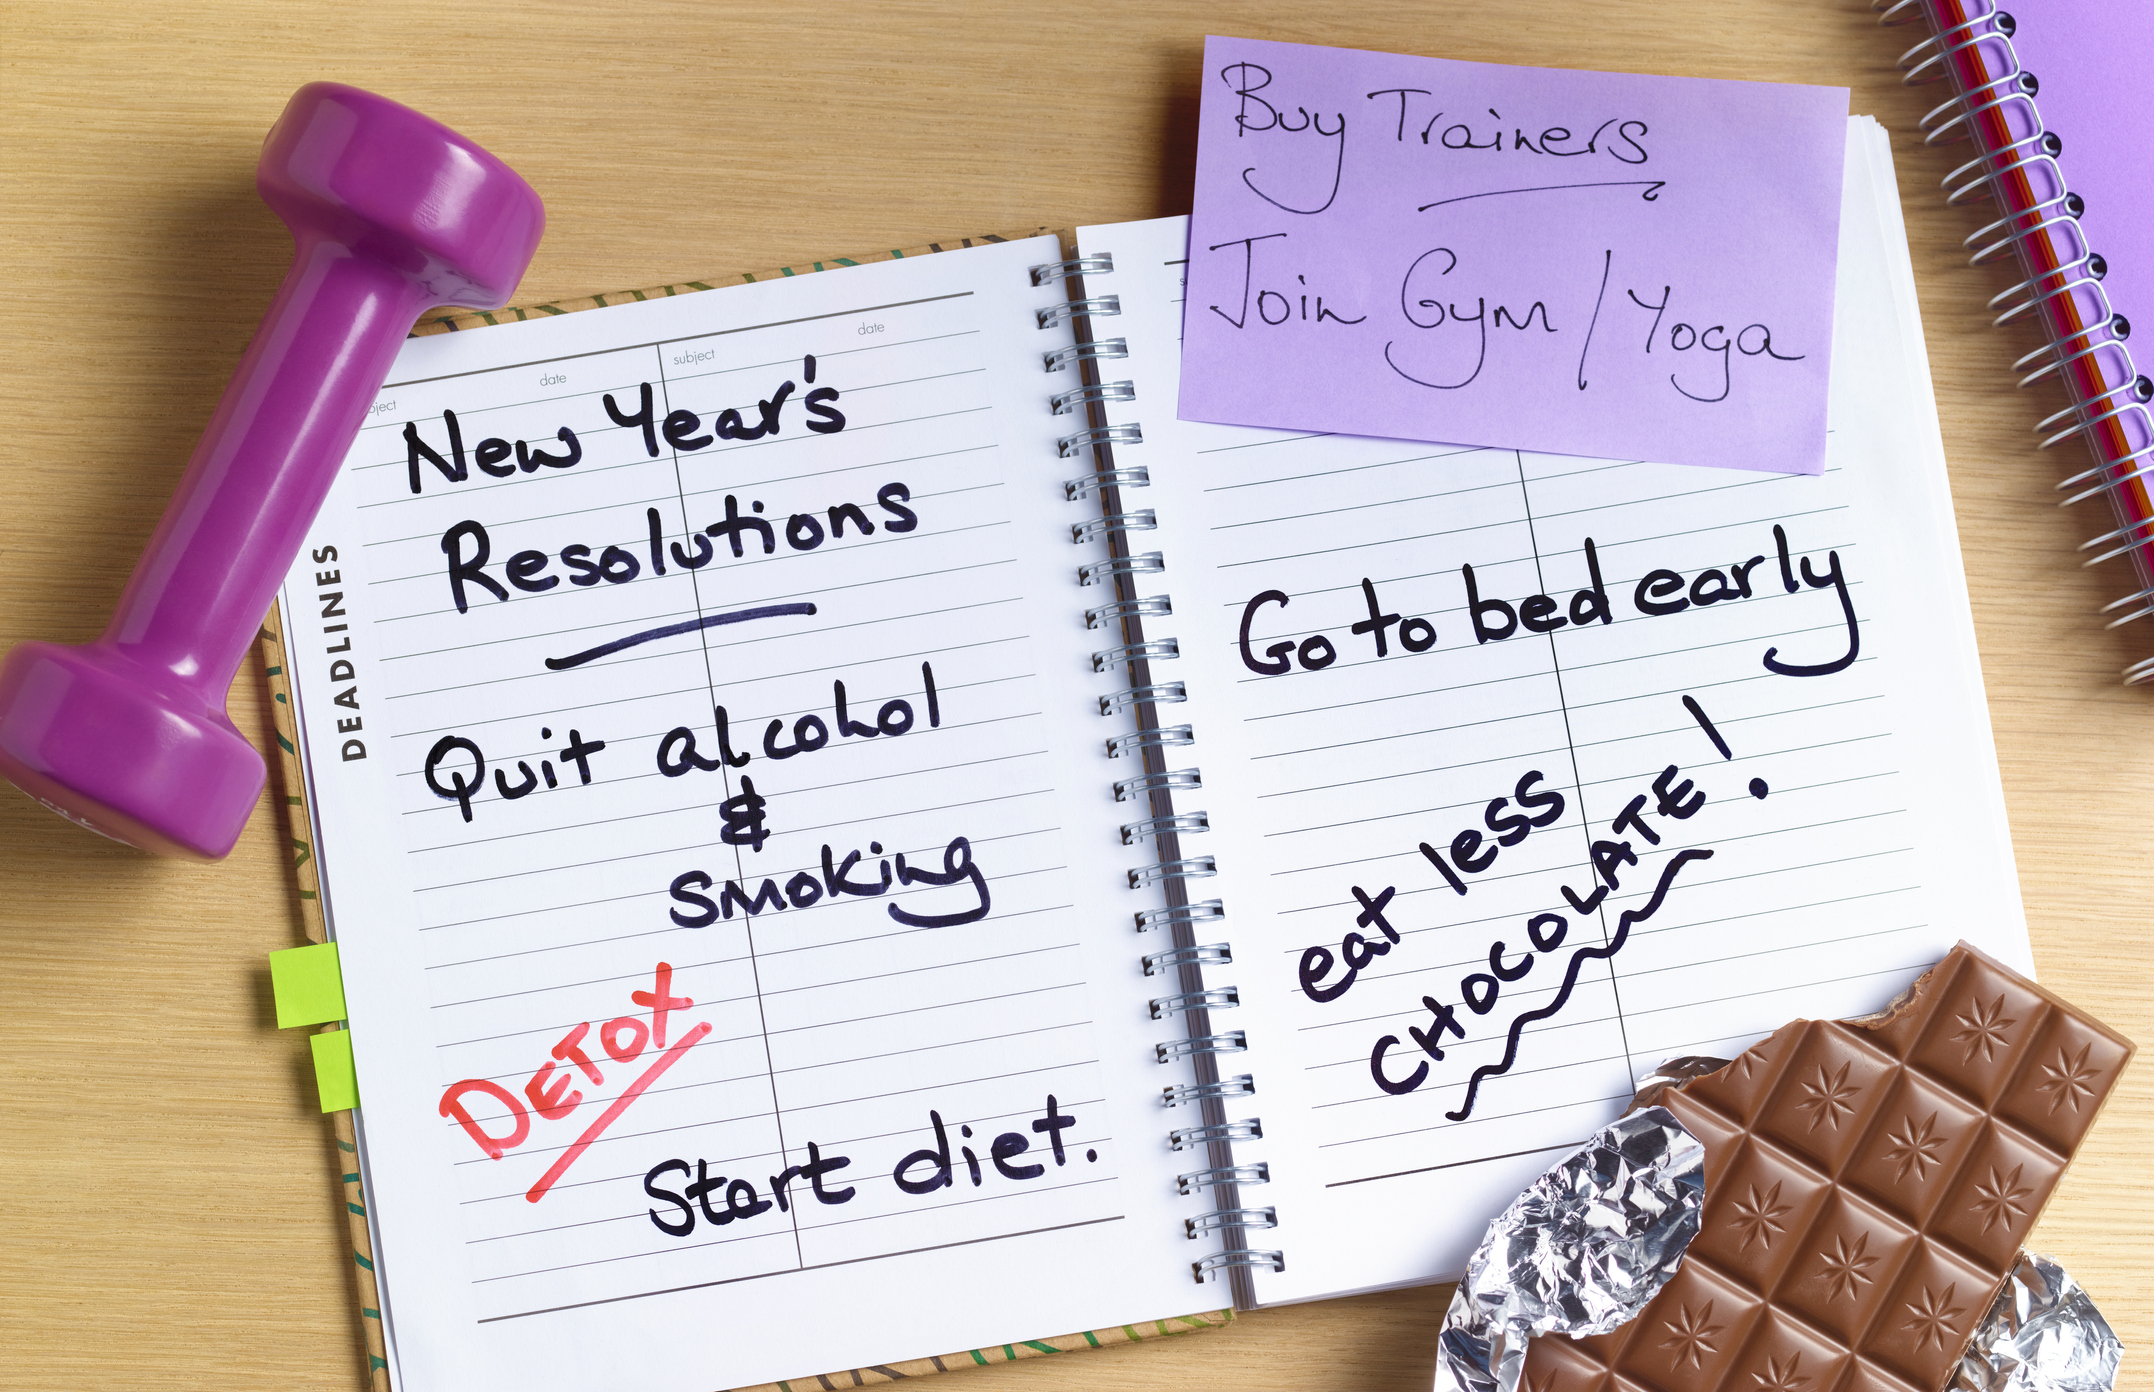 subject date
date
DEADLINES
New Year's
Resolutions
Quit alcohol
&
smoking
DETOX
Start diet.
Buy Trainers
Join Gym / Yoga
Go to bed early
eat less
CHOCOLATE!